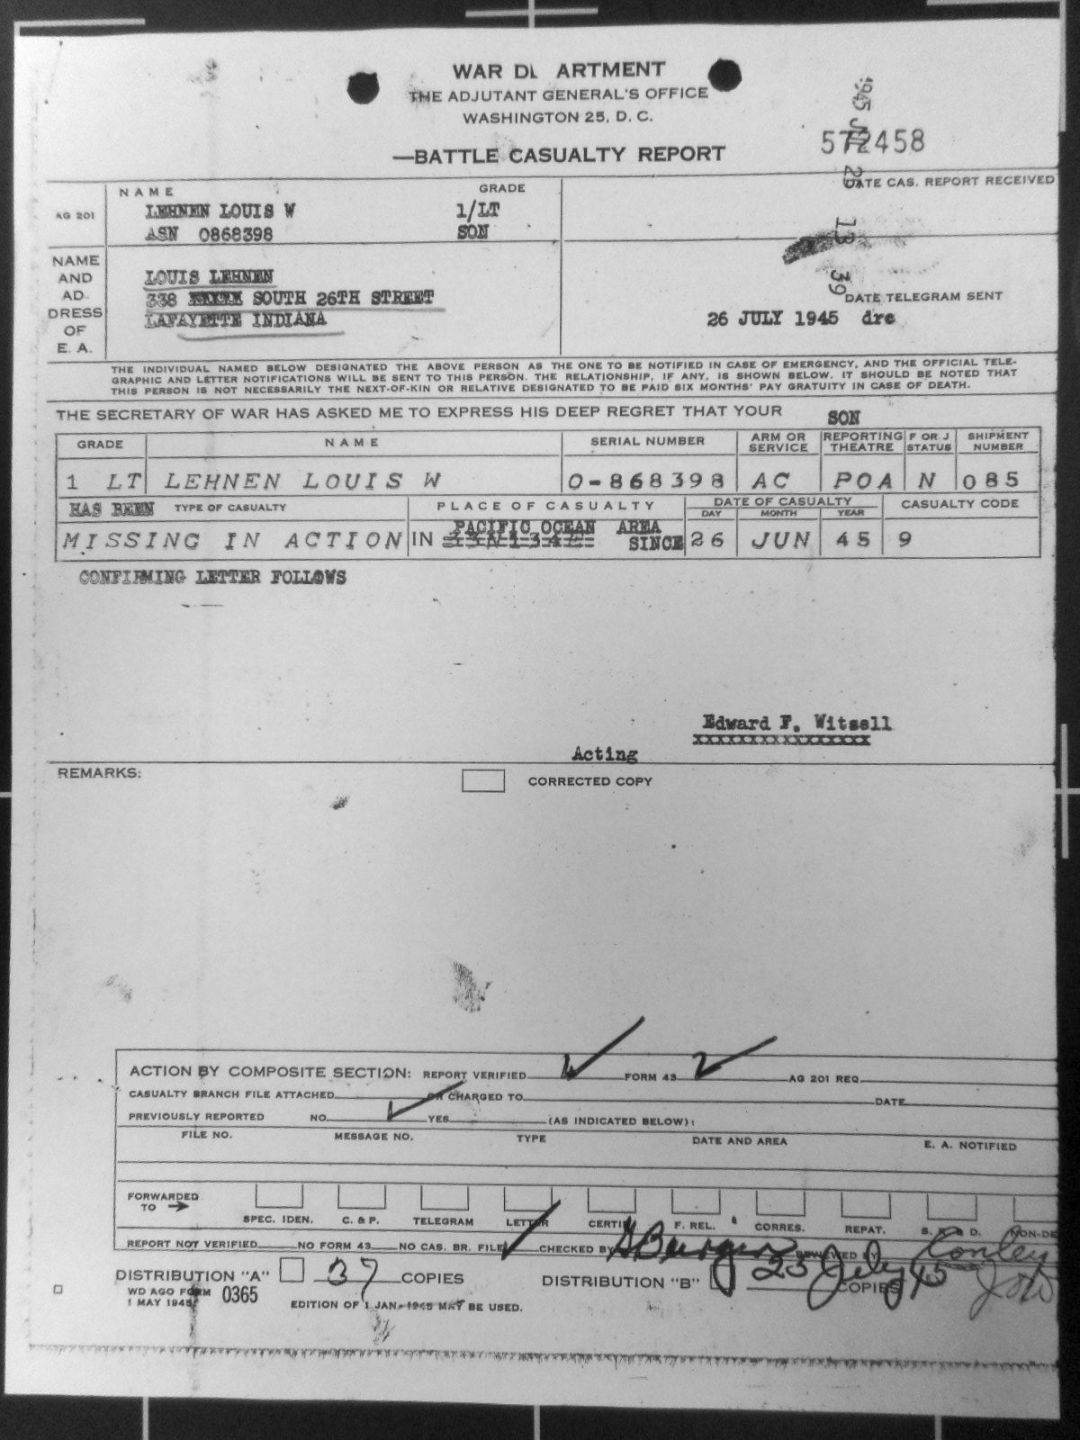 WAR D ARTMENT
THE ADJUTANT GENERAL'S OFFICE
WASHINGTON 25, D. C.
—BATTLE CASUALTY REPORT
572458
1945 JUL 25 13 39
DATE CAS. REPORT RECEIVED
NAME GRADE
AG 201
LEHNEN LOUIS W 1/LT
ASN 0868398 SON
NAME AND ADDRESS OF E. A.
LOUIS LEHNEN
338 SOUTH 26TH STREET
LAFAYETTE INDIANA
DATE TELEGRAM SENT
26 JULY 1945 drc
THE INDIVIDUAL NAMED BELOW DESIGNATED THE ABOVE PERSON AS THE ONE TO BE NOTIFIED IN CASE OF EMERGENCY, AND THE OFFICIAL TELE-
GRAPHIC AND LETTER NOTIFICATIONS WILL BE SENT TO THIS PERSON. THE RELATIONSHIP, IF ANY, IS SHOWN BELOW. IT SHOULD BE NOTED THAT
THIS PERSON IS NOT NECESSARILY THE NEXT-OF-KIN OR RELATIVE DESIGNATED TO BE PAID SIX MONTHS' PAY GRATUITY IN CASE OF DEATH.
THE SECRETARY OF WAR HAS ASKED ME TO EXPRESS HIS DEEP REGRET THAT YOUR SON
GRADE NAME SERIAL NUMBER ARM OR SERVICE REPORTING THEATRE F OR J STATUS SHIPMENT NUMBER
1 LT LEHNEN LOUIS W O-868398 AC POA N 085
HAS BEEN TYPE OF CASUALTY PLACE OF CASUALTY DATE OF CASUALTY CASUALTY CODE
DAY MONTH YEAR
PACIFIC OCEAN AREA
MISSING IN ACTION IN SINCE 26 JUN 45 9
CONFIRMING LETTER FOLLOWS
Edward F. Witsell
XXXXXXXXXXXXXXXXX
Acting
REMARKS:
CORRECTED COPY
ACTION BY COMPOSITE SECTION: REPORT VERIFIED FORM 43 2 AG 201 REQ.
CASUALTY BRANCH FILE ATTACHED OR CHARGED TO DATE
PREVIOUSLY REPORTED NO YES (AS INDICATED BELOW):
FILE NO. MESSAGE NO. TYPE DATE AND AREA E. A. NOTIFIED
FORWARDED TO →
SPEC. IDEN. C. & P. TELEGRAM LETTER CERTIF. F. REL. CORRES. REPAT. S. & D. NON-DE
REPORT NOT VERIFIED NO FORM 43 NO CAS. BR. FILE CHECKED BY REVIEWED BY Conley
DISTRIBUTION "A" 37 COPIES DISTRIBUTION "B" COPIES
25 July 45
WD AGO FORM 0365
1 MAY 1945
EDITION OF 1 JAN. 1945 MAY BE USED.